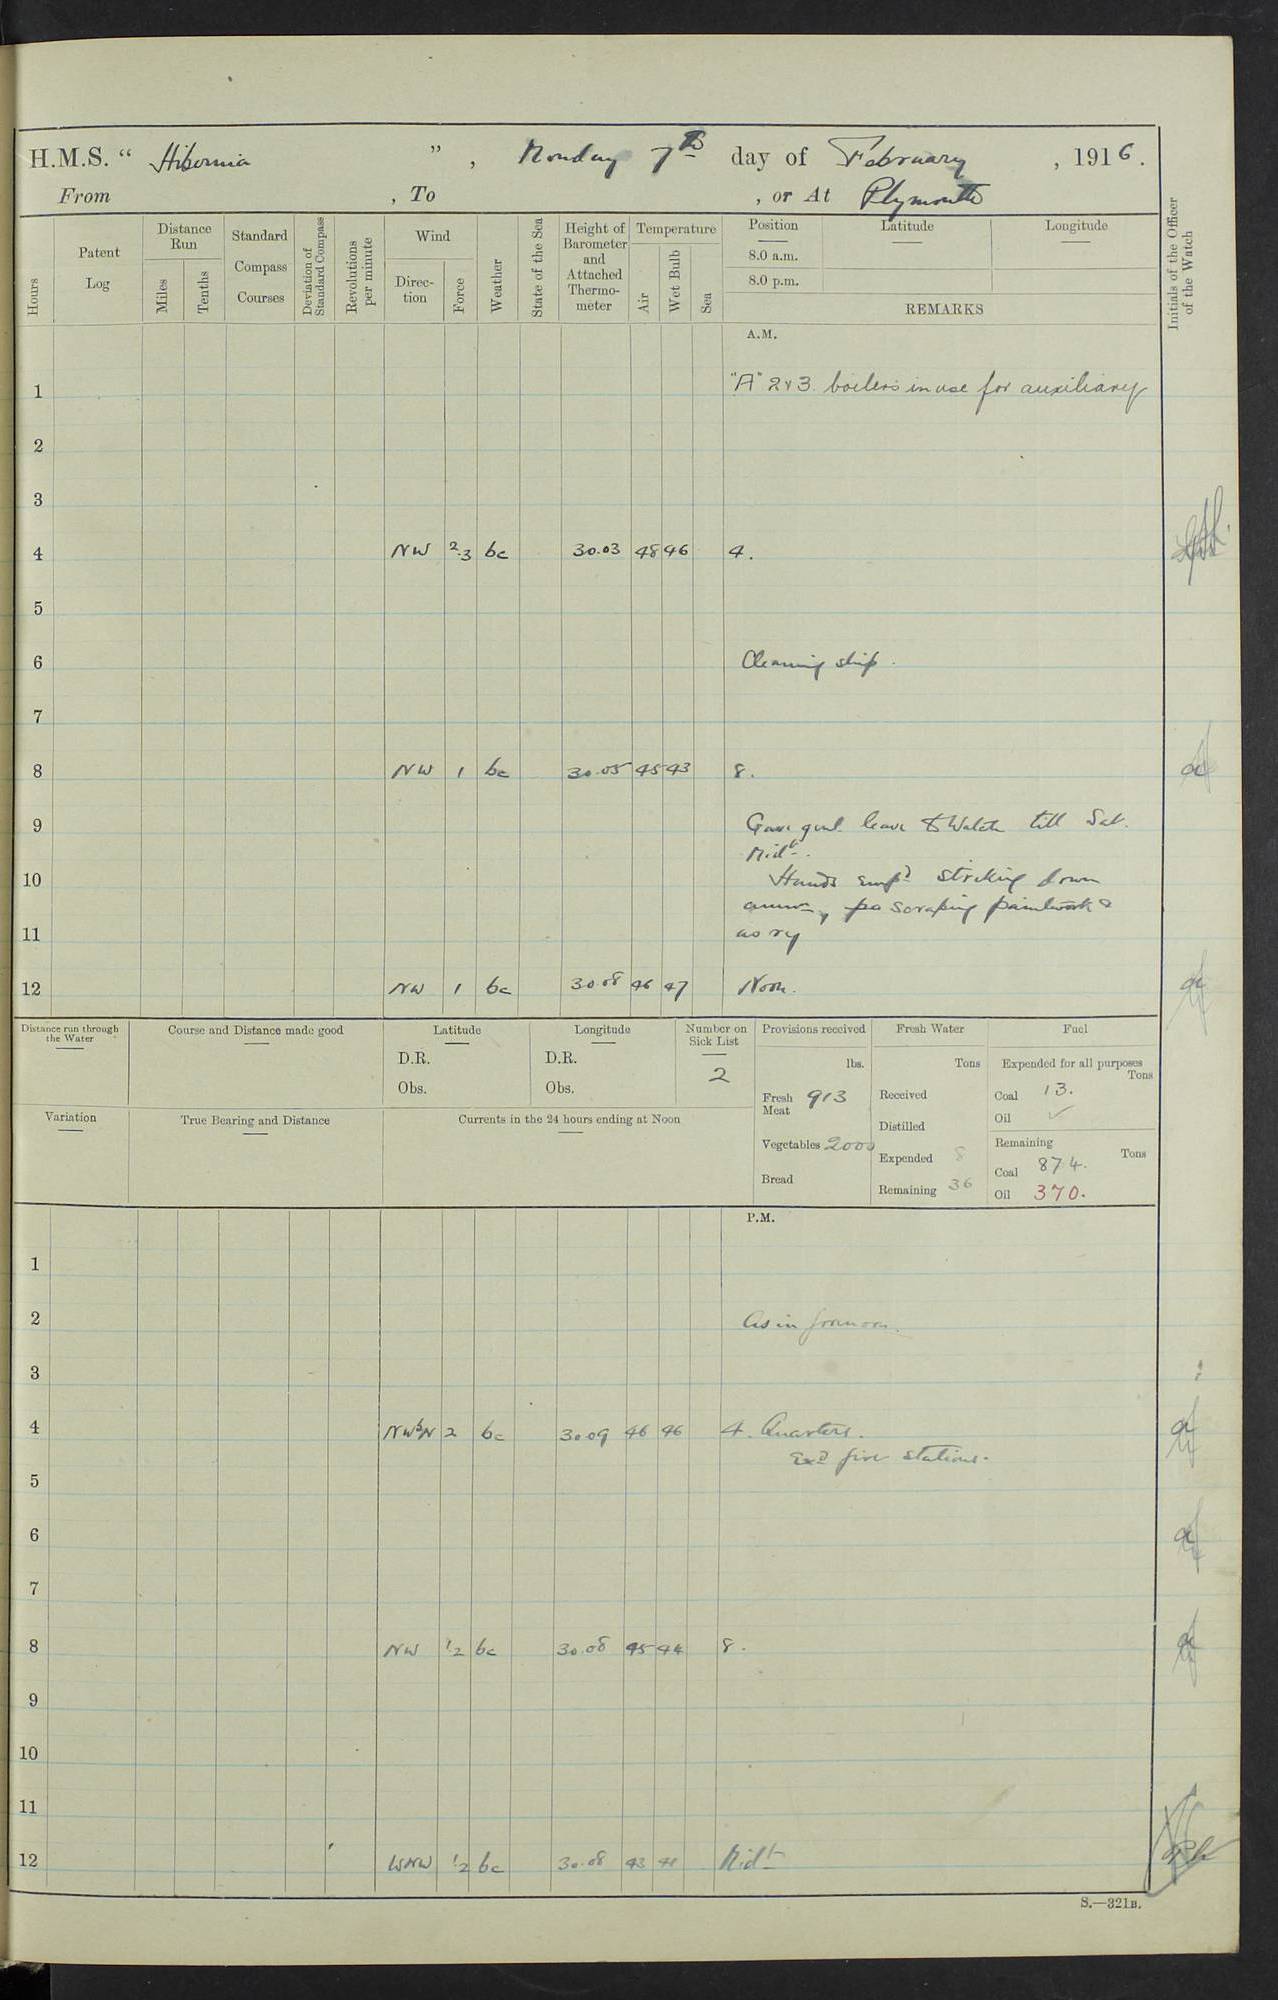 H.M.S. “ Hibernia ” , Monday 7th day of February , 1916.
From , To , or At Plymouth
Hours
Patent Log
Distance Run
Miles
Tenths
Standard Compass Courses
Deviation of Standard Compass
Revolutions per minute
Wind
Direc-tion
Force
Weather
State of the Sea
Height of Barometer and Attached Thermo-meter
Temperature
Air
Wet Bulb
Sea
Position
8.0 a.m.
8.0 p.m.
Latitude
Longitude
REMARKS
Initials of the Officer of the Watch
A.M.
1 "A" 2 & 3 boilers in use for auxiliary
2
3
4 NW 2.3 bc 30.03 48 46 4.
5
6 Cleaning ship.
7
8 NW 1 bc 30.05 45 43 8.
9 Gave genl. leave to Watch till Sat.
Midt.
10 Hands empd striking down
ammn, scraping paintwork &
11 as rq
12 NW 1 bc 30.08 46 47 Noon.
Distance run through the Water
Course and Distance made good
Latitude
D.R.
Obs.
Longitude
D.R.
Obs.
Number on Sick List
2
Provisions received
lbs.
Fresh Meat 913
Vegetables 2000
Bread
Fresh Water
Tons
Received
Distilled
Expended 8
Remaining 36
Fuel
Expended for all purposes
Tons
Coal 13.
Oil ✓
Remaining
Tons
Coal 874.
Oil 370.
Variation
True Bearing and Distance
Currents in the 24 hours ending at Noon
P.M.
1
2 As in forenoon.
3
4 NWbN 2 bc 30.09 46 46 4. Quarters.
Exd fire stations.
5
6
7
8 NW 1/2 bc 30.08 45 44 8.
9
10
11
12 WNW 1/2 bc 30.08 43 41 Midt
S.—321B.